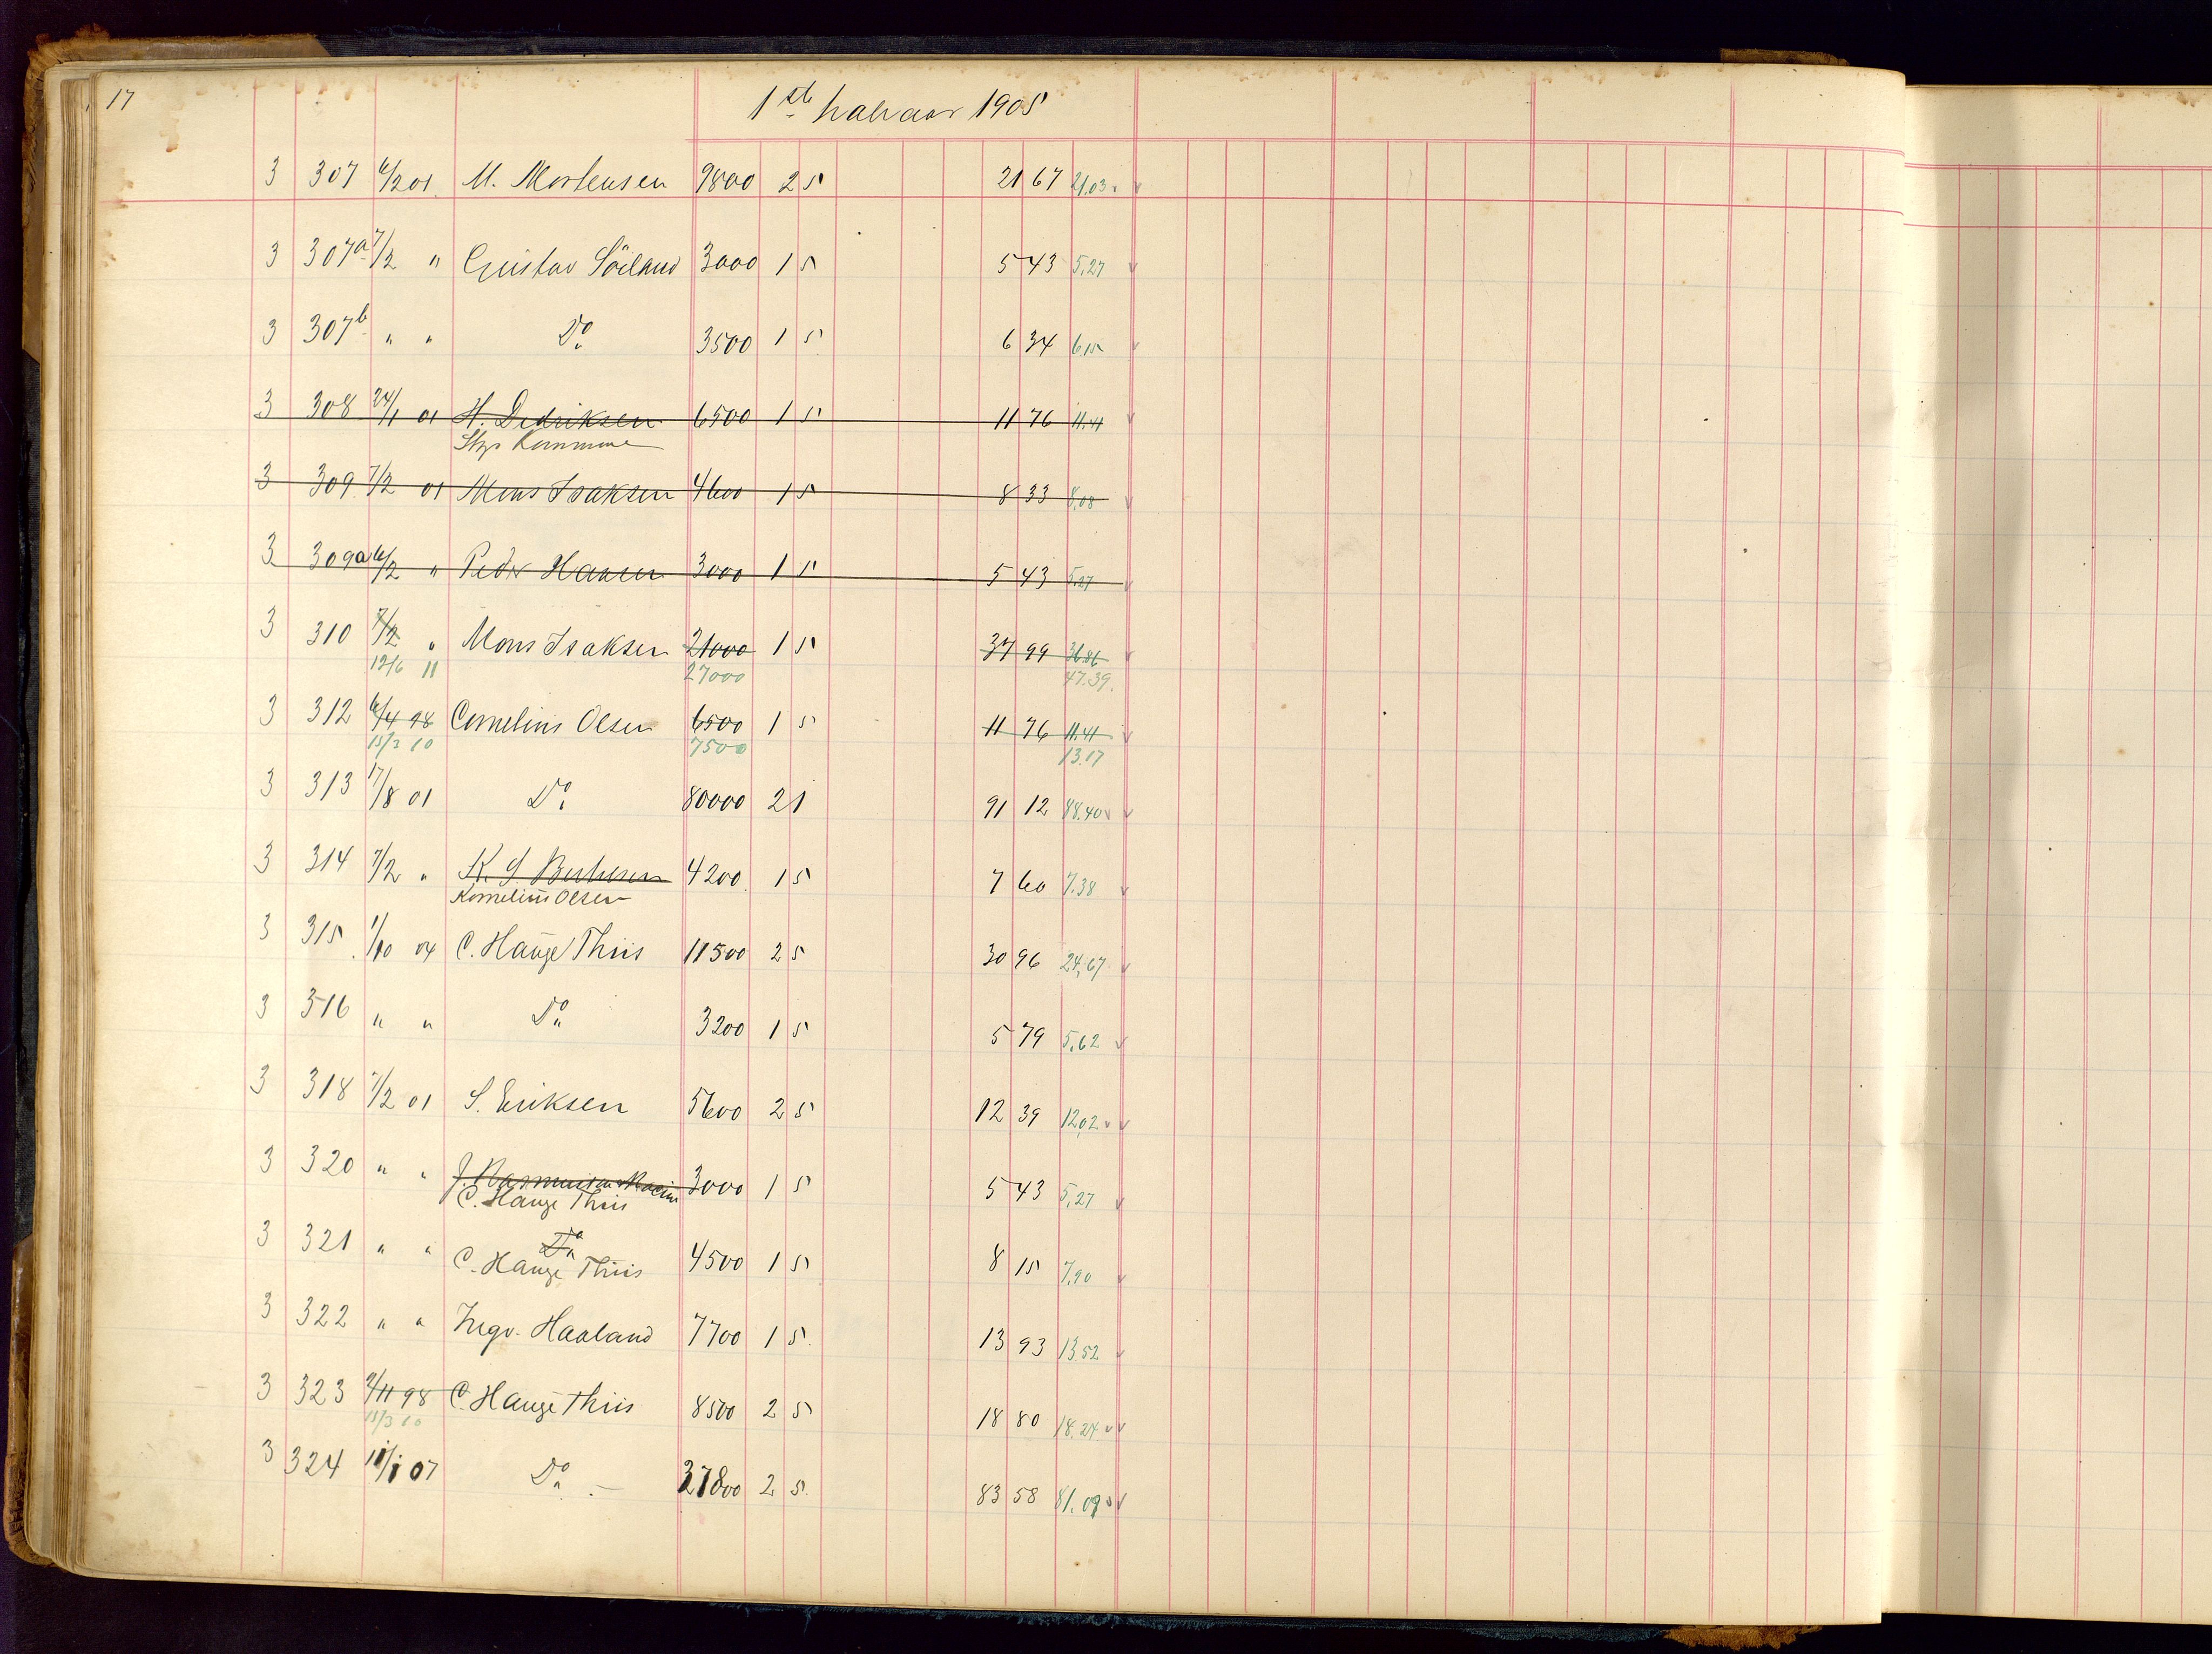 17
1ste halvaar 1905
3 307 6/2 01 M. Mortensen 9800 2 5 21 67 21,03
3 307a 7/2 " Gustav Söiland 3000 1 5 5 43 5,27
3 307b " " Do 3500 1 5 6 34 6,15
3 308 24/1 01 H. Dedriksen 6500 1 5 11 76 11.41
Kommune
3 309 7/2 01 Mons Isaksen 4600 1 5 8 33 8,08
3 309a 6/2 " Peder Hansen 3000 1 5 5 43 5.27
3 310 7/2 " Mons Isaksen 21000 1 5 37 99 36.86
12/6 11 27000 47.39.
3 312 6/4 98 Cornelius Olsen 6500 1 5 11 76 11.41
15/3 10 7500 13.17
3 313 17/8 01 Do 80000 2 1 91 12 88.40
3 314 7/2 " K. S. 4200 1 5 7 60 7.38
Kornelius Olsen
3 315 1/10 04 C. Hauge Thiis 11500 2 5 30 96 24,67
3 316 " " Do 3200 1 5 5 79 5,62
3 318 7/2 01 S. Eriksen 5600 2 5 12 39 12,02
3 320 " " J. Rasmussen 3000 1 5 5 43 5,27
C. Hauge Thiis
3 321 " " Do 4500 1 5 8 15 7,90
C. Hauge Thiis
3 322 " " Ingv. Haaland 7700 1 5 13 93 13 52
3 323 2/11 98 C. Hauge Thiis 8500 2 5 18 80 18.24
15/3 10
3 324 11/1 07 Do 37800 2 5 83 58 81.09